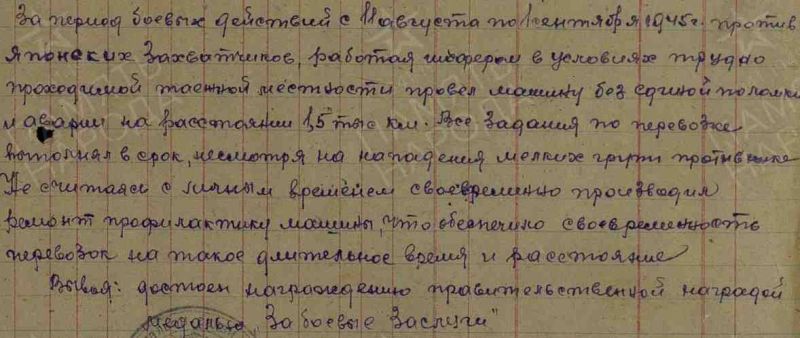 За период боевых действий с 11 августа по 1 сентября 1945 г. против
Японских захватчиков, работая шофером в условиях трудно
проходимой таежной местности провел машину без единой поломки
и аварии на расстоянии 1,5 тыс км. Все задания по перевозке
выполнял в срок, несмотря на нападения мелких групп противника
Не считаясь с личным временем своевременно производил
ремонт профилактику машины, что обеспечило своевременность
перевозок на такое длительное время и расстояние
Вывод: достоен награждению правительственной наградой
медалью „За боевые заслуги"